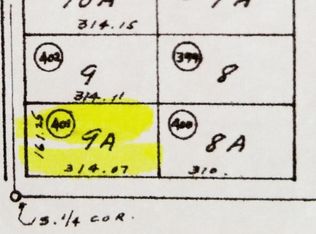 10A
314.15
402
9
314.11
399
8
401
161.25
9A
314.07
400
8A
310.
S. 1/4 COR.